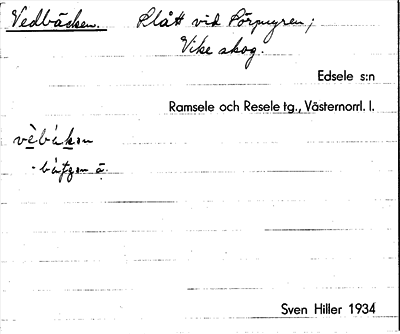 Vedbäcken. Slått vid Pörpmyren;
Vike skog.
Edsele s:n
Ramsele och Resele tg., Västernorrl. l.
vèbäken
Sven Hiller 1934